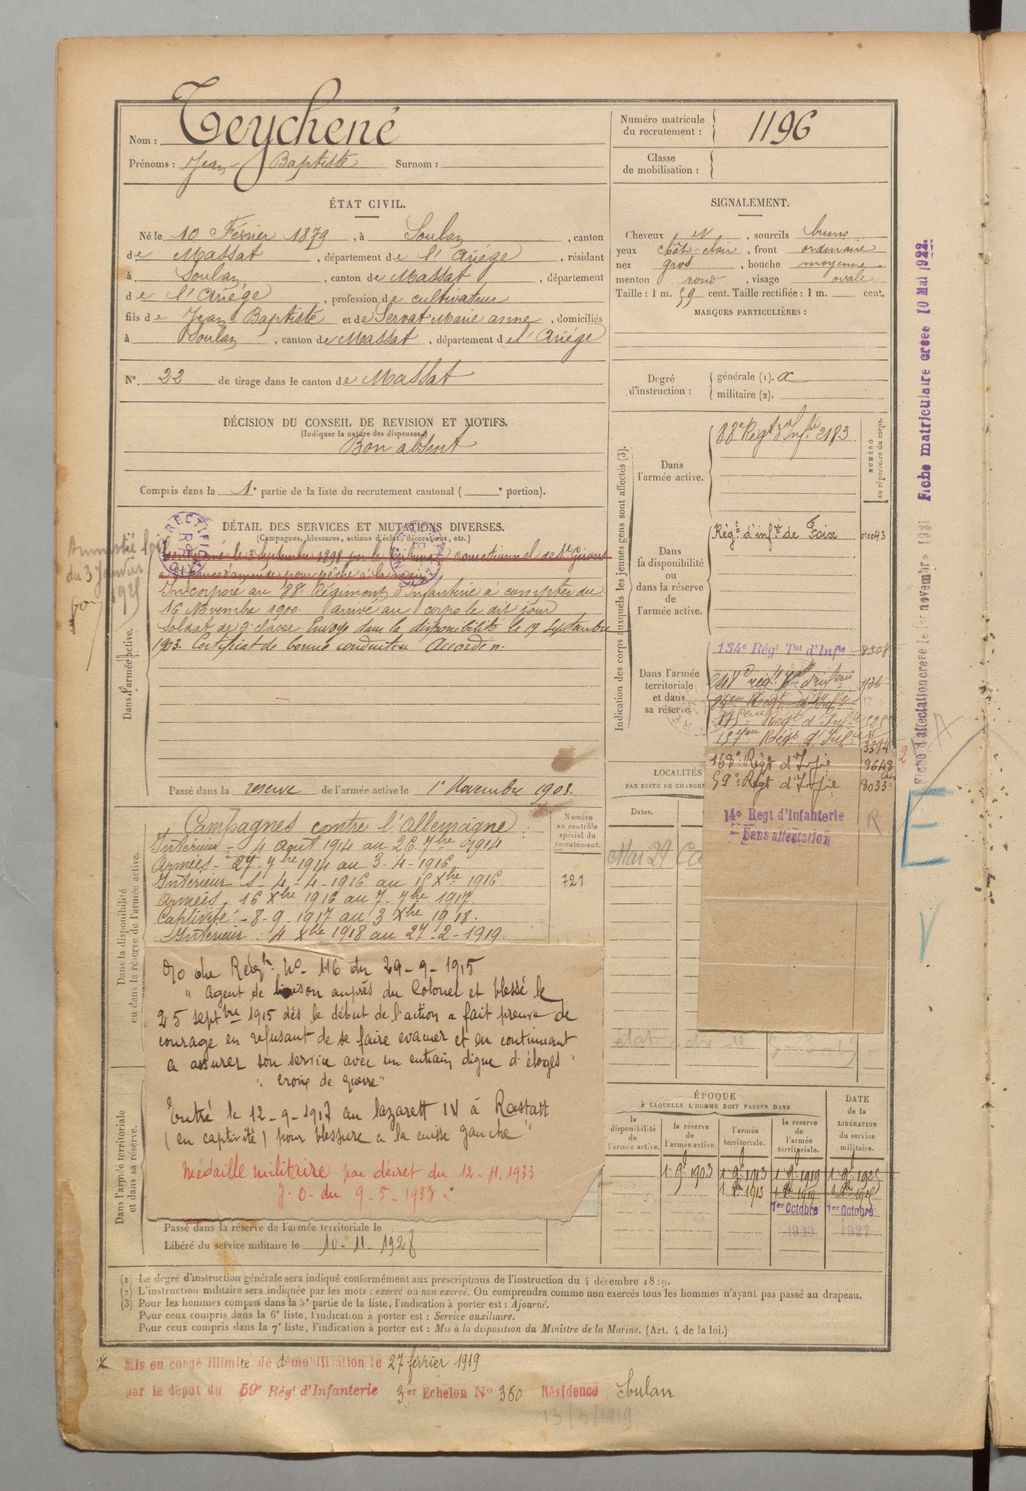 Nom : Teychené
Prénoms : Jean Baptiste Surnom :
Numéro matricule du recrutement : 1196
Classe de mobilisation :
ÉTAT CIVIL.
Né le 10 Février 1879, à Soulan, canton
de Massat, département de l'Ariége, résidant
à Soulan, canton de Massat, département
de l'Ariége, profession de cultivateur
fils de Jean Baptiste et de Servat Marie anne, domiciliés
à Soulan, canton de Massat, département de l'Ariége
N° 22 de tirage dans le canton de Massat
SIGNALEMENT.
Cheveux N, sourcils bruns
yeux chât-clair, front ordinaire
nez gros, bouche moyenne
menton rond, visage ovale
Taille : 1 m. 59 cent. Taille rectifiée : 1 m. cent.
MARQUES PARTICULIÈRES :
Degré d'instruction : générale (1). militaire (2).
DÉCISION DU CONSEIL DE REVISION ET MOTIFS.
(Indiquer la nature des dispenses)
Bon absent
Compris dans la 1e partie de la liste du recrutement cantonal ( e portion).
DÉTAIL DES SERVICES ET MUTATIONS DIVERSES.
(Campagnes, blessures, actions d'éclat, décorations, etc.)
le 3 septembre 1898 par le tribunal correctionnel de St Girons
Incorporé au 88e Régiment d'infanterie à compter du
16 Novembre 1900. arrivé au corps le dit jour
soldat de 2e classe. Envoyé dans la disponibilité le 19 septembre
1903. Certificat de bonne conduite Accordé.
Dans l'armée active.
Passé dans la reserve de l'armée active le 1er Novembre 1903.
Amnistié loi
du 3 Janvier
1925
Indication des corps auxquels les jeunes gens sont affectés (3).
NUMÉRO au répertoire du corps.
Dans l'armée active.
88e Régt d'Infie 2183
Dans la disponibilité ou dans la réserve de l'armée active.
Régt d'infie de Foix
Dans l'armée territoriale et dans sa réserve.
134e Régt Tal d'Infie 8308
137eme Régt d'Infie 3394
168e Régt d'Infie 9648
59e Régt d'Infie 8033
14e Regt d'Infanterie
Sans affectation
R
LOCALITÉS
PAR SUITE DE CHANGE
Dates.
Mai 29
Dans la disponibilité ou dans la réserve de l'armée active.
Numéro au contrôle spécial du recrutement.
721
Campagnes contre l'Allemagne :
Intérieur - 4 Août 1914 au 26 7bre 1914
Armées - 27-7bre 1914 au 3-4-1916
Intérieur - 4-4-1916 au 15 Xbre 1916
Armées. 16 Xbre 1916 au 7. 7bre 1917
Captivité - 8-9-1917 au 3 Xbre 1918.
Intérieur : 4 Xbre 1918 au 27-2-1919.
du Régt No 116 du 29-9-1915
" Agent de liaison auprès du Colonel et blessé le
25 septbre 1915 dès le début de l'action a fait preuve de
courage en refusant de se faire evacuer et en continuant
a assurer son service avec un entrain digne d'éloges "
" Croix de guerre "
Entré le 12-9-1917 au lazarett IV à Rastatt
(en captivité) pour blessure a la cuisse gauche "
Médaille militaire par décret du 12-11-1933
J.O. du 9-5-1933
Dans l'armée territoriale et dans sa réserve.
Passé dans la réserve de l'armée territoriale le
Libéré du service militaire le 10-11-1928
ÉPOQUE
À LAQUELLE L'HOMME DOIT PASSER DANS
la disponibilité de l'armée active. la réserve de l'armée active. l'armée territoriale. la réserve de l'armée territoriale.
DATE de la LIBÉRATION du service militaire.
1er Octobre 1er Octobre
1920 1927
(1) Le degré d'instruction générale sera indiqué conformément aux prescriptions de l'instruction du 4 décembre 1889.
(2) L'instruction militaire sera indiquée par les mots : exercé ou non exercé. On comprendra comme non exercés tous les hommes n'ayant pas passé au drapeau.
(3) Pour les hommes compris dans la 5e partie de la liste, l'indication à porter est : Ajourné.
Pour ceux compris dans la 6e liste, l'indication à porter est : Service auxiliaire.
Pour ceux compris dans la 7e liste, l'indication à porter est : Mis à la disposition du Ministre de la Marine. (Art. 4 de la loi.)
Mis en congé illimité de démobilisation le 27 février 1919
par le dépôt du 59e Régt d'Infanterie 3er Echelon No 360 Résidence Soulan
13/3/1919
Fiche matriculaire créée 10 Mai 1922.
Fiche d'affectation créée le novembre